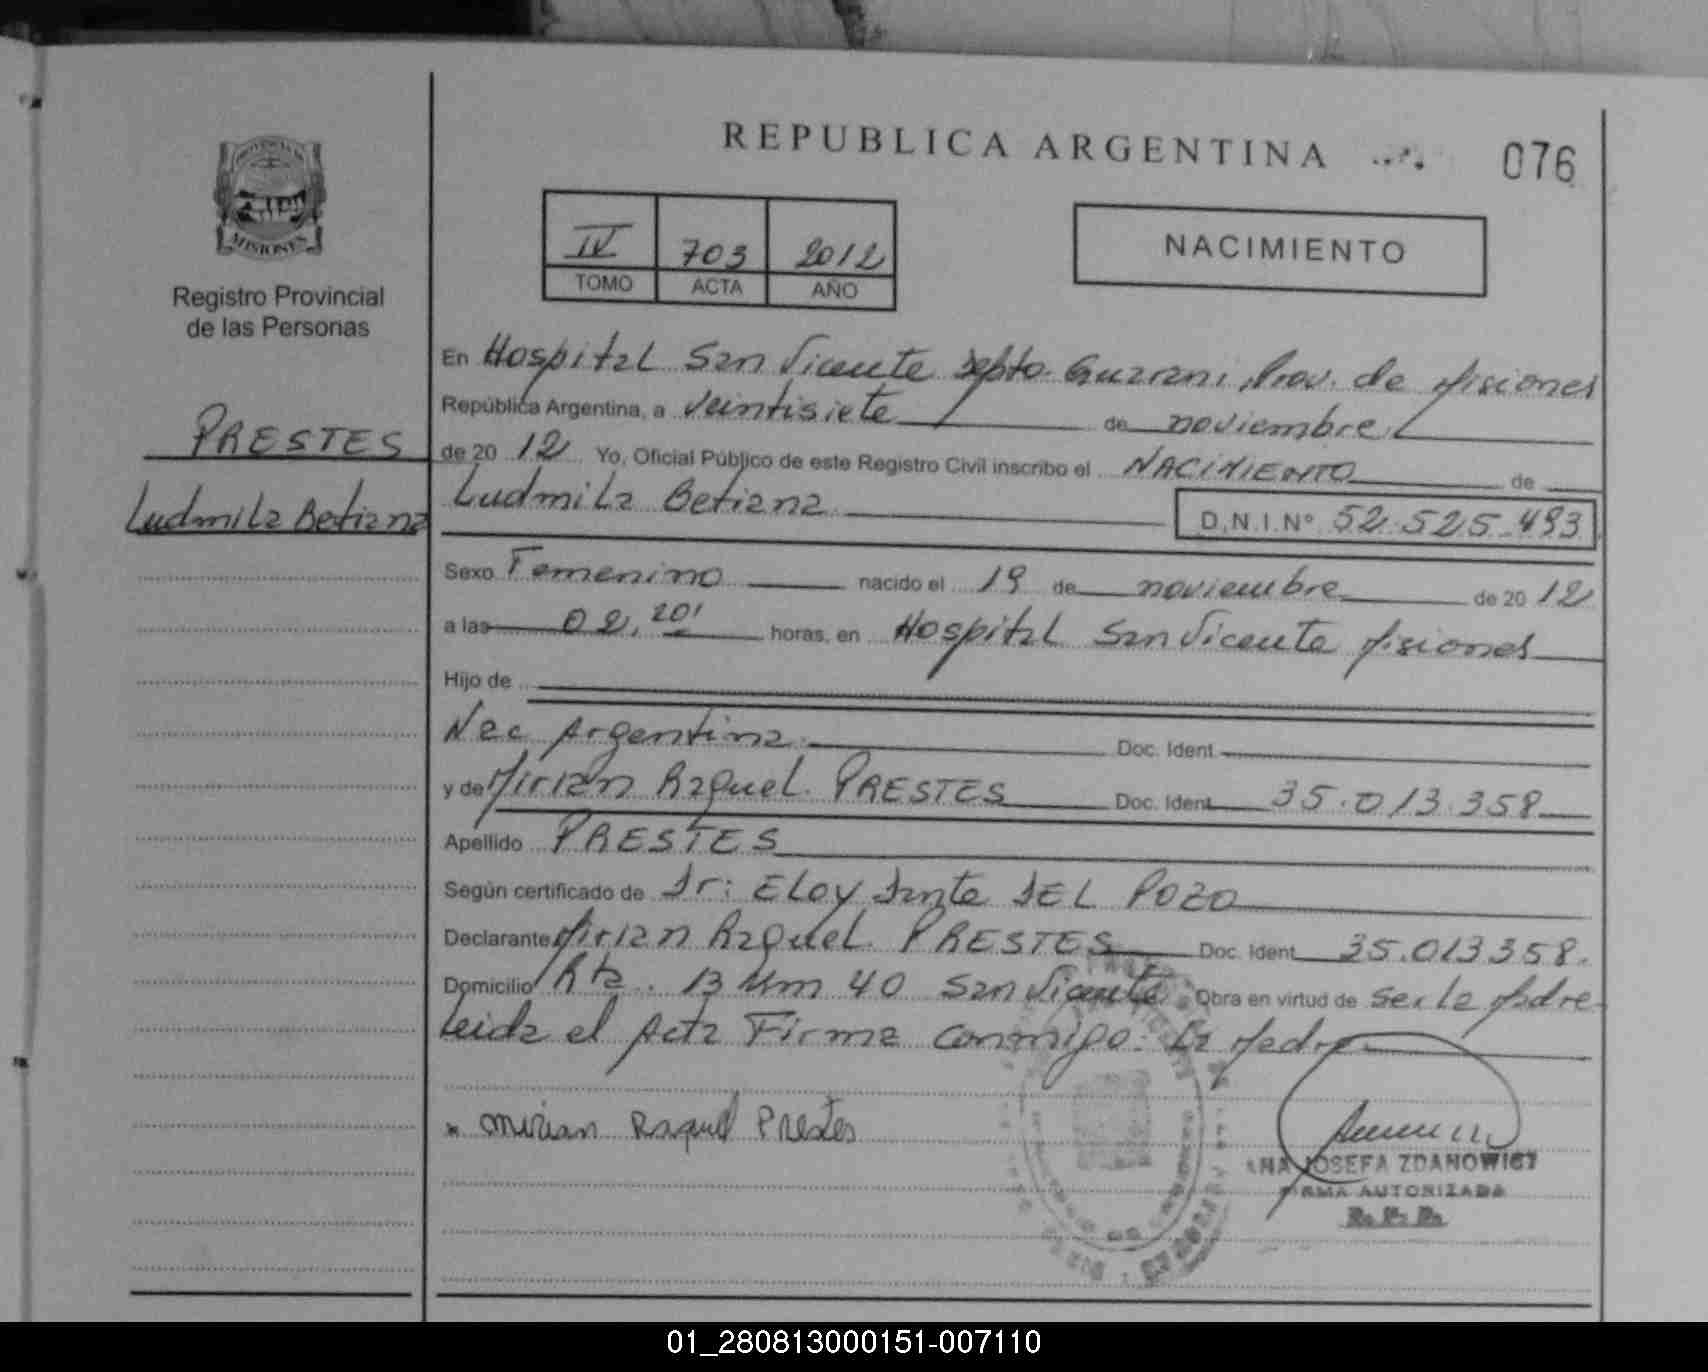 REPUBLICA ARGENTINA
076
PROVINCIA DE
MISIONES
Registro Provincial
de las Personas
IV 703 2012
TOMO ACTA AÑO
NACIMIENTO
PRESTES
Ludmila Betiana
En Hospital San Vicente Depto. Guarani, Prov. de Misiones
República Argentina, a veintisiete de noviembre
de 20 12 Yo, Oficial Público de este Registro Civil inscribo el NACIMIENTO de
Ludmila Betiana
D.N.I.Nº 52.525.493
Sexo Femenino nacido el 19 de noviembre de 20 12
a las 02,20' horas, en Hospital San Vicente Misiones
Hijo de
Nac Argentina. Doc. Ident.
y de Mirian Raquel. PRESTES Doc. Ident. 35.013.358
Apellido PRESTES
Según certificado de Dr: ELOY Dante DEL POZO
Declarante Mirian Raquel. PRESTES Doc. Ident. 35.013358.
Domicilio Rta. 13 Km 40 San Vicente Obra en virtud de ser la Madre
Leida el Acta Firma conmigo: La Madre
x Mirian Raquel Prestes
ANA JOSEFA ZDANOWICZ
FIRMA AUTORIZADA
R. P. P.
01_280813000151-007110